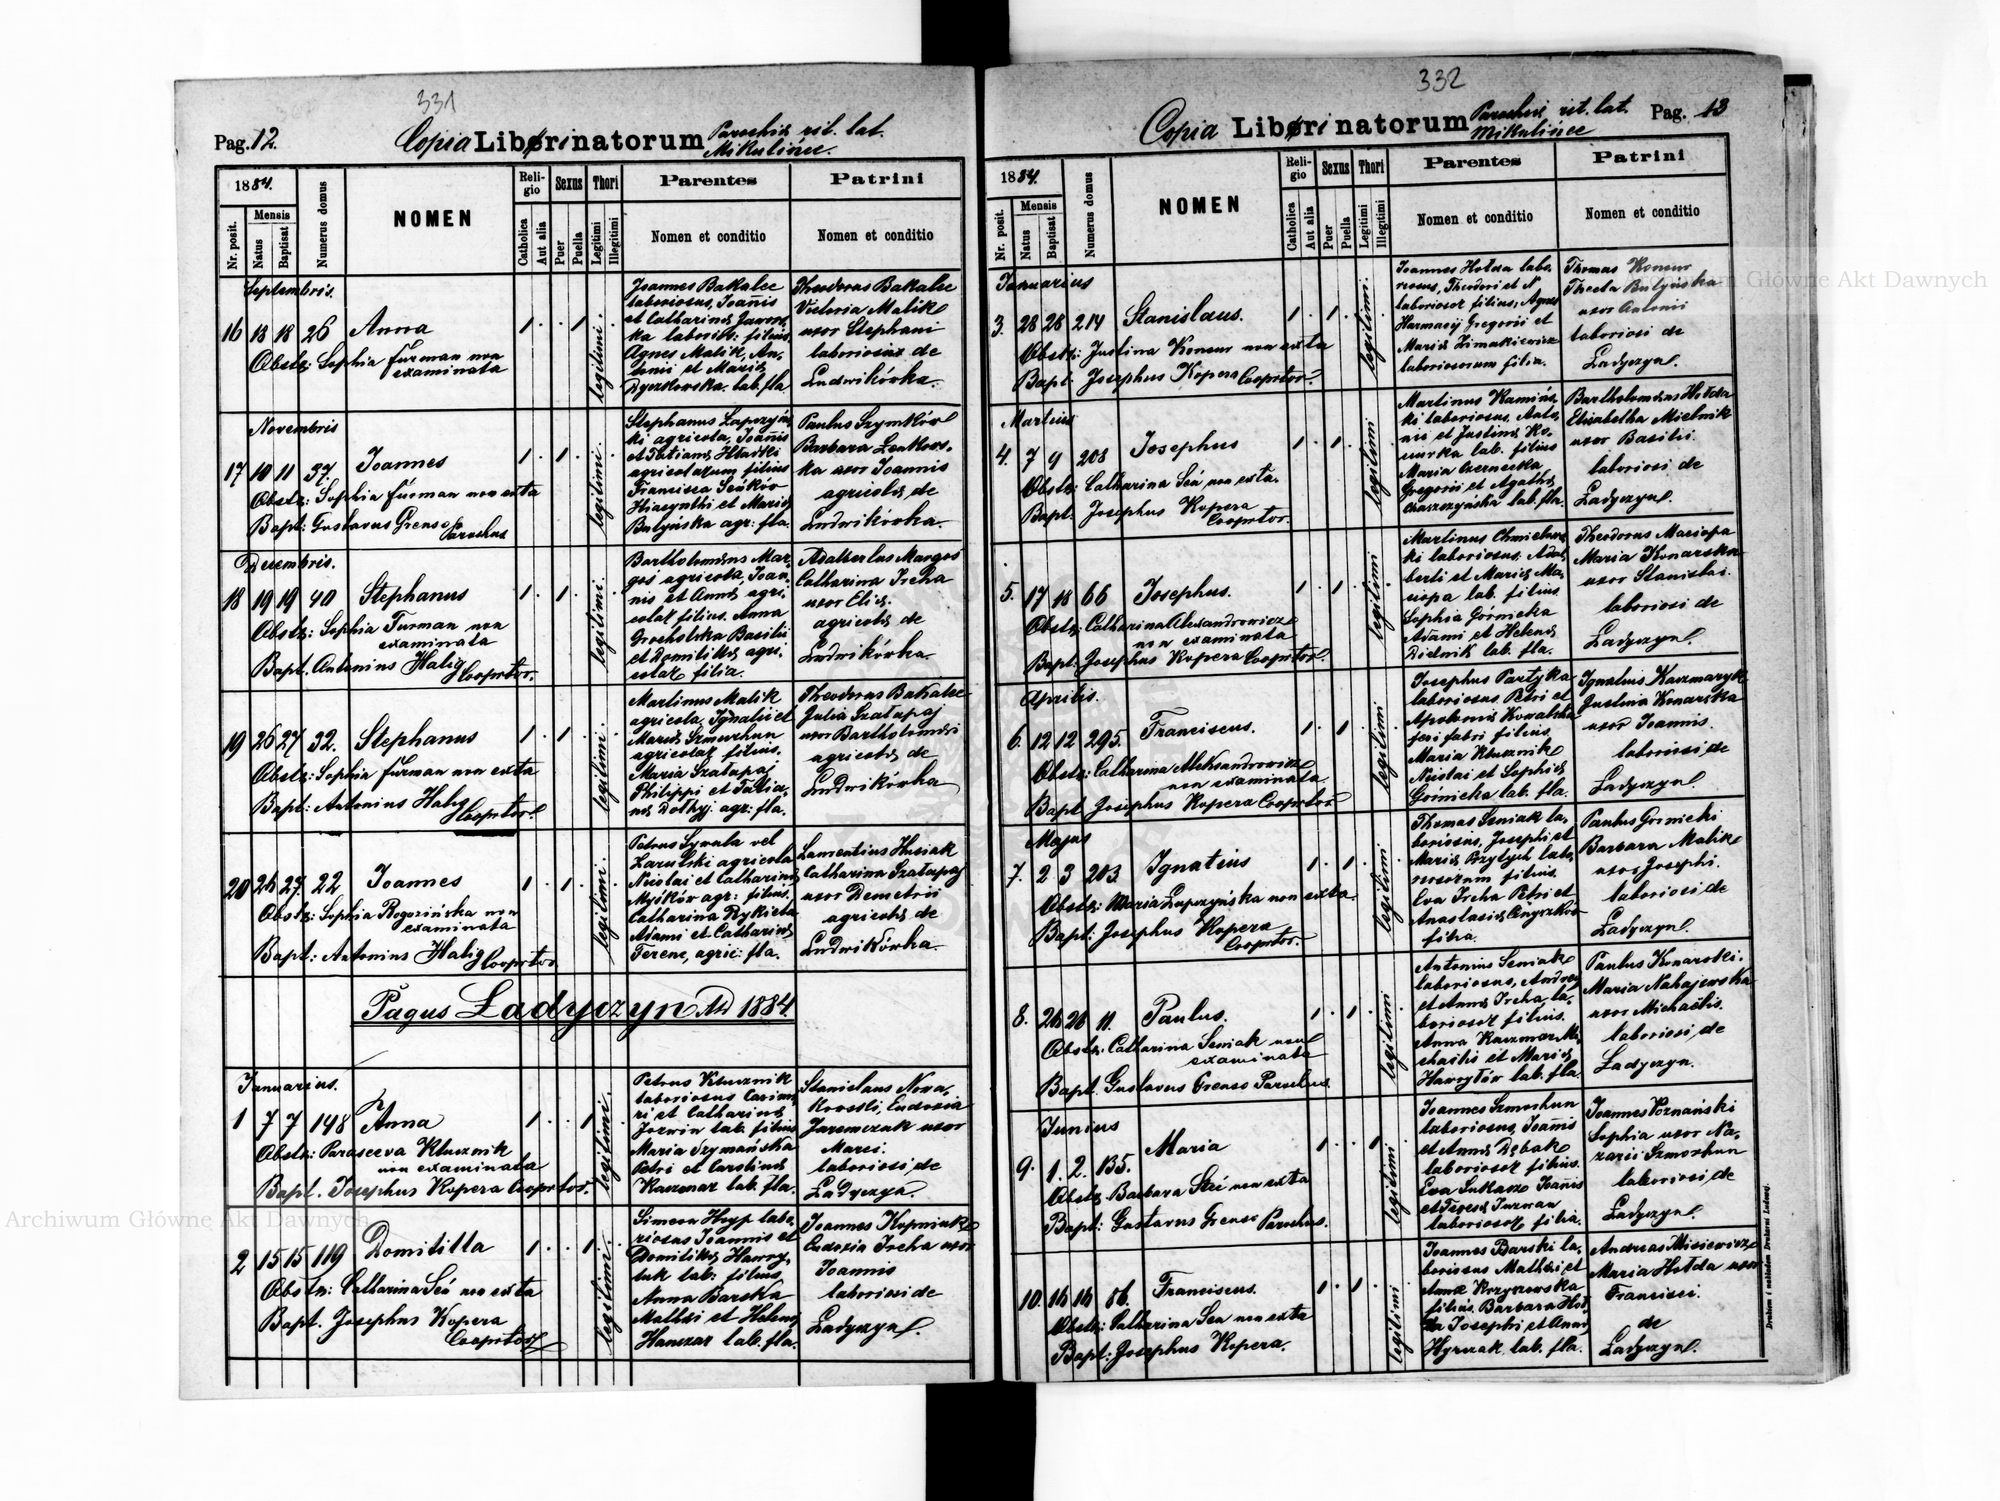 331
Pag. 12.
Copia Libri natorum Parochiæ rit. lat.
Mikulińce.
1884.
Nr. posit.
Mensis
Natus
Baptisat
Numerus domus
NOMEN
Religio
Catholica
Aut alia
Sexus
Puer
Puella
Thori
Legitimi
Illegitimi
Parentes
Nomen et conditio
Patrini
Nomen et conditio
Septembris.
16 18 18 26 Anna 1 . . 1 legitimi.
Obstr: Sophia Furman non
examinata
Joannes Bakalec
laboriosus, Joannis
et Catharinæ
Agnes Malik, An-
tonii et Mariæ
lab. fla
Theodorus Bakalec
Victoria Malik
uxor Stephani
laboriosæ de
Ludwikówka.
Novembris
17 10 11 37. Joannes 1 . 1 . legitimi.
Obstr: Sophia Furman non exta
Bapt: Gustavus Grenso
Parochus
Stephanus
ki agricola, Joannis
et Tatianæ
agricolarum filius
Francisca
Hiacynthi et Mariæ
agr: fla.
Paulus Szymków
Barbara
ka uxor Joannis
agricolæ de
Ludwikówka.
Decembris.
18 19 19 40 Stephanus 1 . 1 . legitimi.
Obstr: Sophia Furman non
examinata
Bapt. Antonius Halig Cooprtor.
Bartholomæus Mar-
gos agricola, Joan-
nis et Annæ agri-
colar filius. Anna
Basilii
et Domitillæ agri-
colar filia.
Adalbertus Margos
Catharina Ircha
uxor Eliæ.
agricolæ de
Ludwikówka.
19 26 27 32. Stephanus 1 . 1 . legitimi.
Obstr: Sophia Furman non exta
Bapt: Antonius Halig
Cooprtor.
Martinus Malik
agricola, Ignatii et
Mariæ Szmorhun
agricolar filius.
Maria Szałapaj
Philippi et Tatia-
næ agr: fla.
Theodorus Bakalec
Julia Szałapaj
uxor Bartholomæi
agricolæ de
Ludwikówka
20 26 27. 22 Joannes 1 . 1 . legitimi.
Obstr: Sophia Rogozińska non
examinata
Bapt: Antonius Halig Cooprtor.
Petrus vel
agricola
Nicolai et Catharinæ
agr: filius.
Catharina Rykieta
Adami et Catharinæ
Ferenc, agric: fla.
Laurentius Husiak
Catharina Szałapaj
uxor Demetrii
agricolæ de
Ludwikówka.
Pagus Ładyczyn AD 1884.
Januarius.
1 7 7 148 Anna 1 . . 1 legitimi.
Obstr: Parasceva Klucznik
non examinata
Bapt. Josephus Kopera Cooprtor.
Petrus Klucznik
laboriosus
ri et Catharinæ
lab. filius
Maria Szymańska
Petri et Carolinæ
Kaczmar lab. fla.
Stanislaus Nova-
Eudoxia
Jaremczuk uxor
Marci.
laboriosi de
Ładyczyn.
2 15 15 119 Domitilla 1 . . 1 legitimi.
Obstr: Catharina Séa non exta
Bapt. Josephus Kopera
Cooprtor
Simeon Hryp labo-
riosus Joannis et
Domitillæ Hawry-
luk lab: filius
Anna Barska
Mathæi et Helenæ
Hanczar lab. fla.
Joannes
Eudoxia Ircha uxor
Joannis
laboriosi de
Ładyczyn.
332
Pag. 13
Copia Libri natorum Parochiæ rit. lat.
Mikulińce
1884.
Nr. posit.
Mensis
Natus
Baptisat
Numerus domus
NOMEN
Religio
Catholica
Aut alia
Sexus
Puer
Puella
Thori
Legitimi
Illegitimi
Parentes
Nomen et conditio
Patrini
Nomen et conditio
Januarius
3. 28 28 214 Stanislaus. 1 . 1 . legitimi.
Obstr: Justina Koneur non exta
Bapt. Josephus Kopera Cooprtor.
Joannes Hołda labo-
riosus, Theodori et N
laboriosor filius; Agnes
Harmacij Gregorii et
Mariæ Zimakiewicz
laboriosorum filia.
Thomas Koneur
Thecla
uxor Antonii
laboriosi de
Ładyczyn.
Martius
4. 7 9 208 Josephus 1 . 1 . legitimi
Obstr: Catharina Séa non exta.
Bapt. Josephus Kopera
Cooprtor.
Martinus Kamińs-
ki laboriosus, Anto-
nii et Justinæ Ko-
lab. filius
Maria Czernecka
Gregorii et Agathæ
lab. fla.
Bartholomæus Hołda
Elisabetha Mielnik
uxor Basilii.
laboriosi de
Ładyczyn.
5. 17 18 66 Josephus. 1 . 1 . legitimi
Obstr: Catharina Alexandrowicz
non examinata
Bapt: Josephus Kopera Cooprtor.
Martinus Chmielews-
ki laboriosus, Adal-
berti et Mariæ Ma-
ciopa lab. filius
Sophia Górnicka
Adami et Helenæ
Dielnik lab. fla.
Theodorus Maciopa
Maria Konarska
uxor Stanislai.
laboriosi de
Ładyczyn.
Aprilis.
6. 12 12 295. Franciscus. 1 . 1 . legitimi
Obstr: Catharina Aleksandrowicz
non examinata
Bapt. Josephus Kopera Cooprtor.
Josephus Partyka
laboriosus Petri et
Apoloniæ Kowalska
feri fabri filius.
Maria Klucznik
Nicolai et Sophiæ
Górnicka lab. fla.
Ignatius Kaczmaryk
Justina Konarska
uxor Joannis.
laboriosi de
Ładyczyn.
Majus
7. 2 3 203. Ignatius 1 . 1 . legitimi
Obstr: Maria Łapczyńska non exta.
Bapt: Josephus Kopera
Cooprtor.
Thomas Seniak la-
boriosus, Josephi et
Mariæ Przytych labo-
riosorum filius.
Eva Ircha Petri et
Anastasiæ
filia.
Paulus Górnicki
Barbara Malik
uxor Josephi.
laboriosi de
Ładyczyn.
8. 26 26 11. Paulus. 1 . 1 . legitimi
Obstr: Catharina Seniak non
examinata
Bapt. Gustavus Grenso Parochus
Antonius Seniak
laboriosus, Andreæ
et Annæ Ircha, la-
boriosor filius.
Anna Kaczmar Mi-
chaelis et Mariæ
Hawryłów lab. fla.
Paulus Konarski.
Maria Nahajewska
uxor Michaelis.
laboriosi de
Ładyczyn.
Junius
9. 1. 2. 135. Maria 1 . . 1 legitimi
Obstr. Barbara non exta
Bapt: Gustavus Grenso Parochus.
Joannes Szmorhun
laboriosus, Joannis
et Annæ Dębak
laboriosor filius.
Eva Łukasz Joannis
et Teresæ Furman
laboriosor filia.
Joannes Poznański
Sophia uxor Na-
zarii Szmorhun
laboriosi de
Ładyczyn.
10. 16 16 56. Franciscus. 1 . 1 . legitimi
Obstr: Catharina Sea non exta
Bapt: Josephus Kopera.
Joannes Barski la-
boriosus Mathæi et
Annæ Krzyzewska
filius. Barbara Hoł-
da Josephi et Annæ
Hyrczak lab. fla.
Andreas Misiewicz
Maria Hołda uxor
Francisci.
de
Ładyczyn.
Drukiem i nakładem Drukarni Ludowej.
Archiwum Główne Akt Dawnych
Archiwum Główne Akt Dawnych